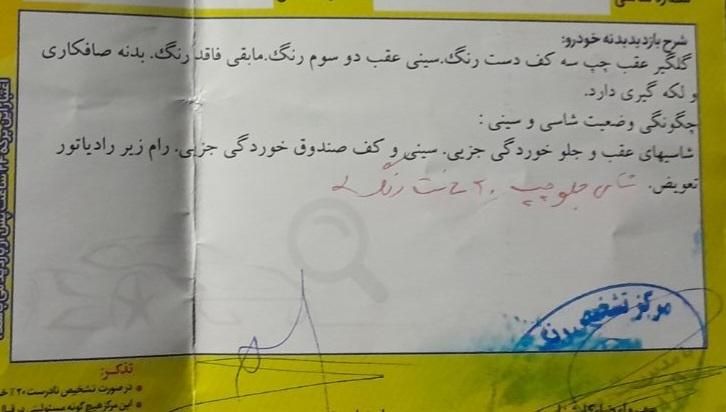 شرح بازدید بدنه خودرو:
گلگیر عقب چپ سه کف دست رنگ.سینی عقب دو سوم رنگ.مابقی فاقد رنگ. بدنه صافکاری
و لکه گیری دارد.
چگونگی وضعیت شاسی و سینی :
شاسیهای عقب و جلو خوردگی جزیی. سینی و کف صندوق خوردگی جزیی. رام زیر رادیاتور
تعویض. جلو چپ رنگ
مرکز تشخیص رنگ
تذکر:
در صورت تشخیص نادرست ۲۰٪
این مرکز هیچ گونه مسئولیتی